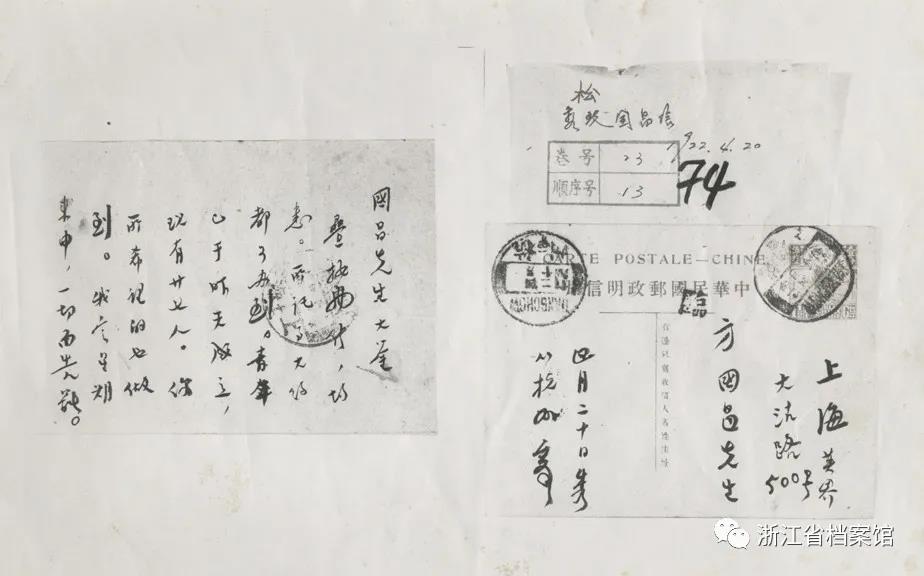 國昌先生大鉴
叠接两片，均
悉。所託事大约
都可办到。青年
已于昨天成立，
现有廿七人。你
所希望的也做
到。我定星期
来申，一切面谈。
松
秀致国昌信
1922.4.20
卷号 23
順序号 13
74
CARTE POSTALE—CHINE
中華民國郵政明信
HANGCHOW
上海英界
大沽路
500号
方國昌先生
四月二十日秀
从杭州寄
浙江省档案馆